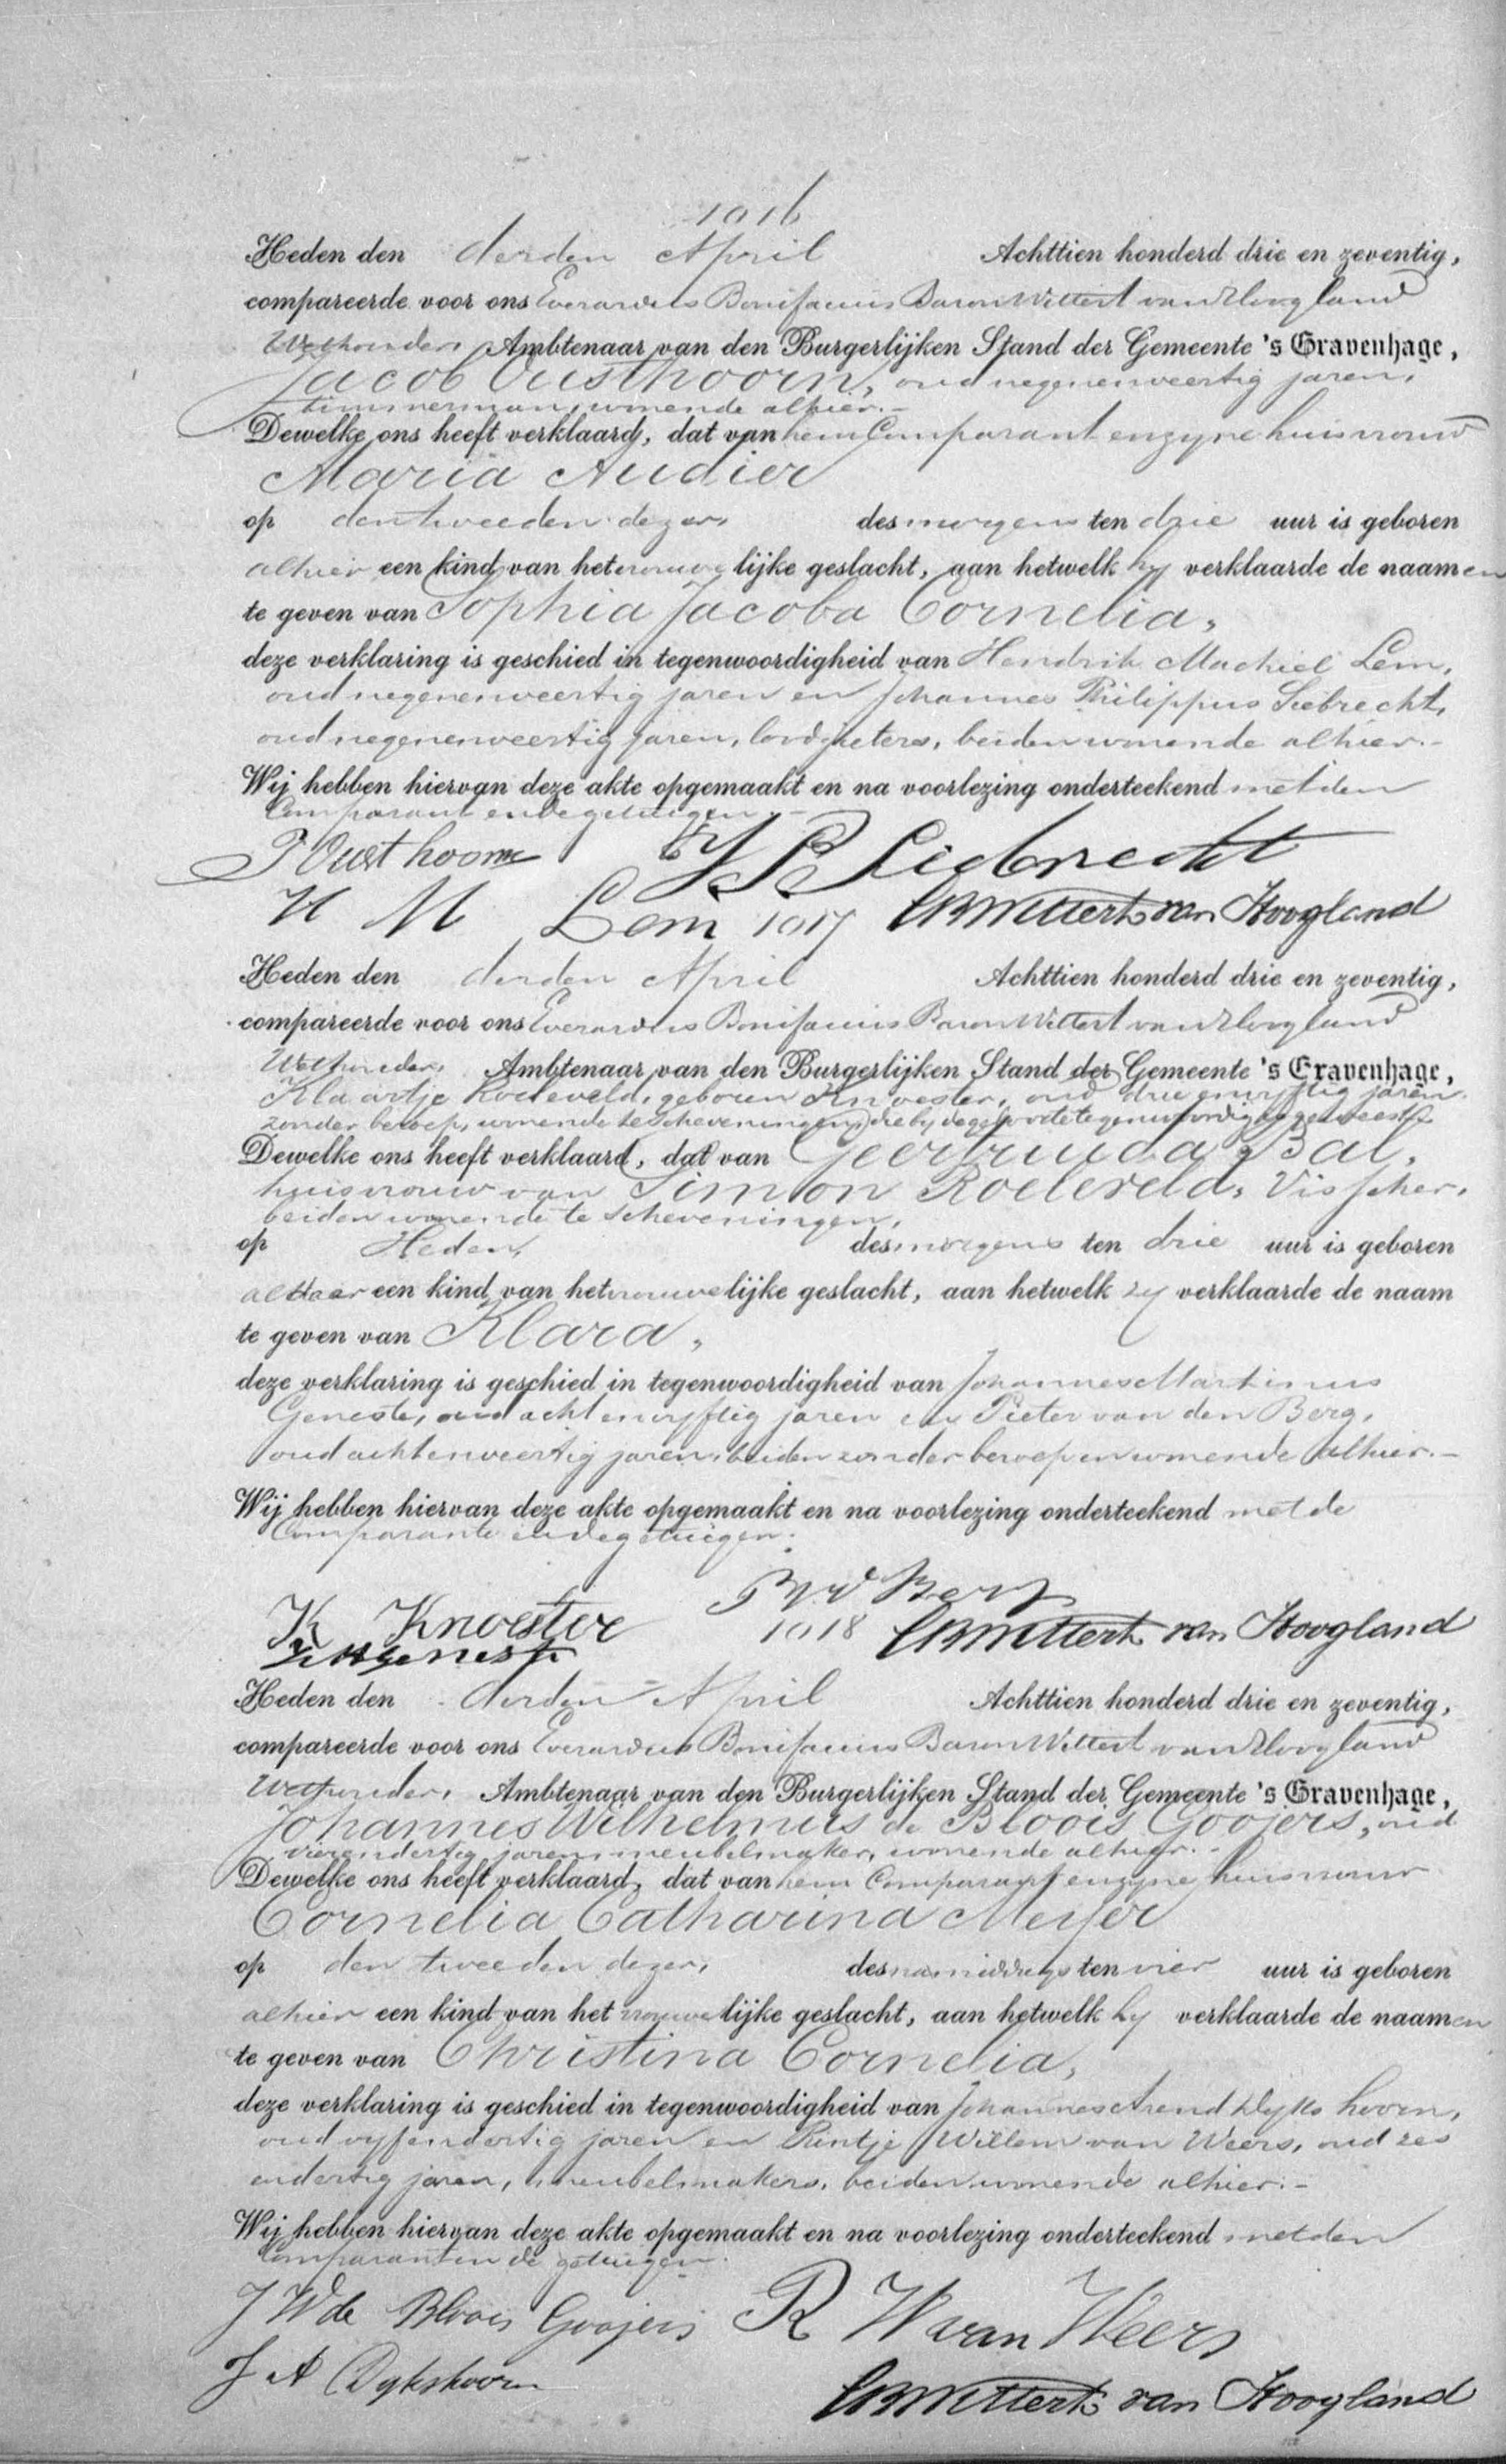 1016
Heden den derden April Achttien honderd drie en zeventig,
compareerde voor ons Everardus Bonifacius Baron Wittert van Hoogland
Wethouder, Ambtenaar van den Burgerlijken Stand der Gemeente 's Gravenhage,
Jacob Oosthoorn, oud negenenveertig jaren,
timmerman, wonende alhier.-
Dewelke ons heeft verklaard, dat van hem Comparant en zyne huisvrouw
Maria Audier
op den tweeden dezer, des morgens ten drie uur is geboren
alhier een kind van het vrouwelijke geslacht, aan hetwelk hy verklaarde de naamen
te geven van Sophia Jacoba Cornelia,
deze verklaring is geschied in tegenwoordigheid van Hendrik Machiel Lem,
oud negenenveertig jaren en Johannes Philippus Liebrecht,
oud negenenveertig jaren, loodgieters, beiden wonende alhier.-
Wij hebben hiervan deze akte opgemaakt en na voorlezing onderteekend met den
Comparant en de getuigen.-
J Oosthoorn J P Liebrecht
H M Lem 1017 EBWittert van Hoogland
Heden den derden April Achttien honderd drie en zeventig,
compareerde voor ons Everardus Bonifacius Baron Wittert van Hoogland
Wethouder, Ambtenaar van den Burgerlijken Stand der Gemeente 's Gravenhage,
Klaartje Roeleveld, geboren Knoester, oud drie en vyftig jaren
zonder beroep, wonende te Scheveningen, die by de geboorte tegenwoordig is geweest,
Dewelke ons heeft verklaard, dat van Geertruida Bal,
huisvrouw van Simon Roeleveld, Visscher,
beiden wonende te Scheveningen,
op Heden, des morgens ten drie uur is geboren
aldaar een kind van het vrouwelijke geslacht, aan hetwelk zy verklaarde de naam
te geven van Klara,
deze verklaring is geschied in tegenwoordigheid van Johannes Martinus
Geneste, oud acht en vyftig jaren en Pieter van den Berg,
oud achtenveertig jaren, beiden zonder beroep en wonende alhier.-
Wij hebben hiervan deze akte opgemaakt en na voorlezing onderteekend met de
Comparante en de getuigen.
K Knoester P v d Berg
JMGeneste 1018 EBWittert van Hoogland
Heden den derden April Achttien honderd drie en zeventig,
compareerde voor ons Everardus Bonifacius Baron Wittert van Hoogland
Wethouder, Ambtenaar van den Burgerlijken Stand der Gemeente 's Gravenhage,
Johannes Wilhelmus de Bloois Goojers, oud
vierendertig jaren, meubelmaker, wonende alhier.-
Dewelke ons heeft verklaard, dat van hem Comparant en zyne huisvrouw
Cornelia Catharina Meijer
op den tweeden dezer, des namiddags ten vier uur is geboren
alhier een kind van het vrouwelijke geslacht, aan hetwelk hy verklaarde de naamen
te geven van Christina Cornelia,
deze verklaring is geschied in tegenwoordigheid van Johannes Arend Dykshoorn,
oud vyfendertig jaren en Rintje Willem van Weers, oud zes
endertig jaren, meubelmakers, beiden wonende alhier.-
Wij hebben hiervan deze akte opgemaakt en na voorlezing onderteekend met den
Comparant en de getuigen.
J W de Bloois Goojers R W van Weers
J A Dykshoorn
EBWittert van Hoogland